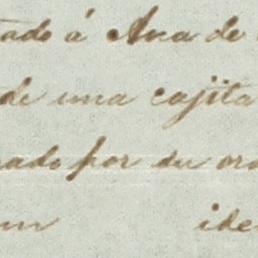 tado á Ana de
de una cajita
rado por su or
m ide